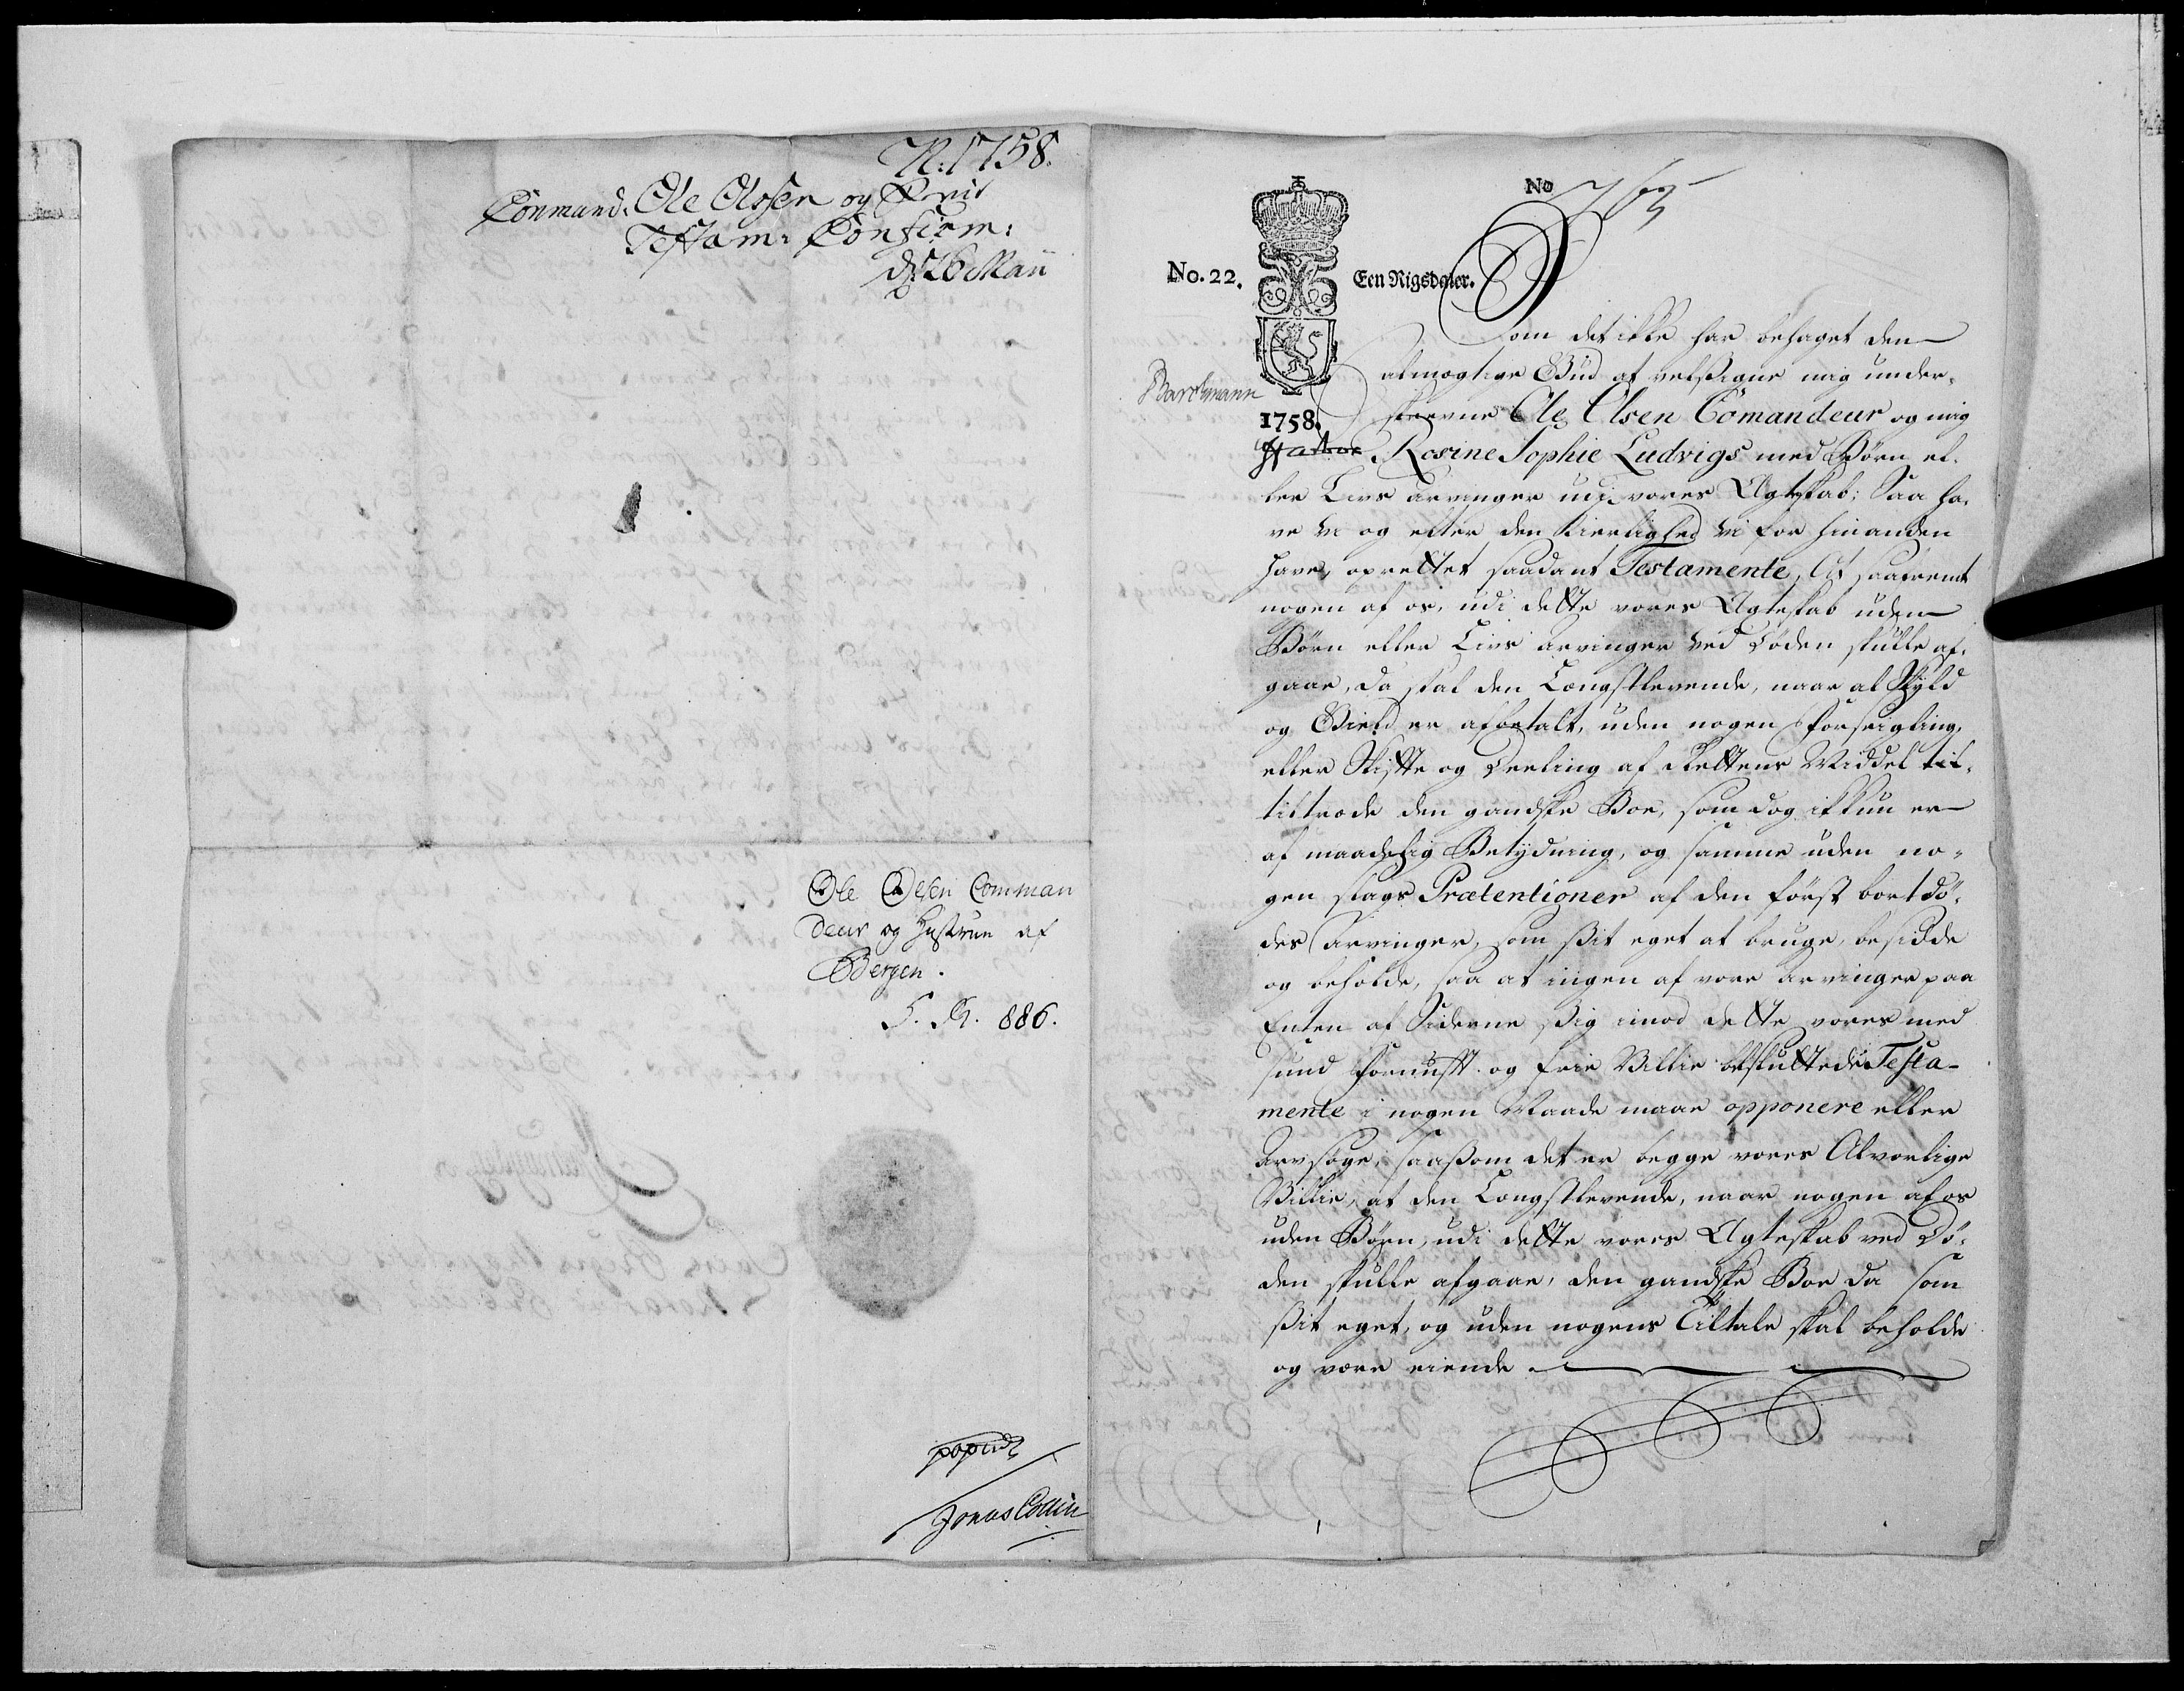 N: 1758.
Commandr Ole Olssen og Qvi
Testam: Confirm:
d: 26 Maii
Ole Olsen Comman
deur og Hustrue af
Bergen.
S. N. 886.
Jonas Collin
No 763
No. 22.
Een Rigsdaler.
1758.
Som det ikke har behaget den
almægtige Gud at velsigne mig under-
skrevne Ole Olsen Comandeur og mig
Rosine Sophie Ludvigs med Børn el-
ler Livs arvinger udi vores Ægteskab; Saa ha-
ve vi og efter den Kierlighed vi for hinanden
have, oprettet saadant Testamente, At saafremt
nogen af os, udi dette vores Ægteskab uden
Børn eller Livs arvinger ved Døden skulle af-
gaae, da skal den Længstlevende, naar al Skyld
og Gield er afbetalt, uden nogen Forseigling,
eller Skifte og Deeling af Rettens Middel til-
tiltræde den gandske Boe, som dog ikkun er
af maadelig Betydning, og samme uden no-
gen slags Prætentioner af den først bortdø-
des Arvinger, som sit eget at bruge, besidde
og beholde, saa at ingen af vore arvinger paa
Enten af Siderne sig imod dette vores med
sund Fornuft og frie Villie besluttede Testa-
mente i nogen Maade maae opponere eller
Arvsøge, saasom det er begge vores Alvorlige
Villie, at den Længstlevende, naar nogen af os
uden Børn, udi dette vores Ægteskab ved Dø-
den skulle afgaae, den gandske Boe da som
sit eget, og uden nogens Tiltale skal beholde
og være eiende